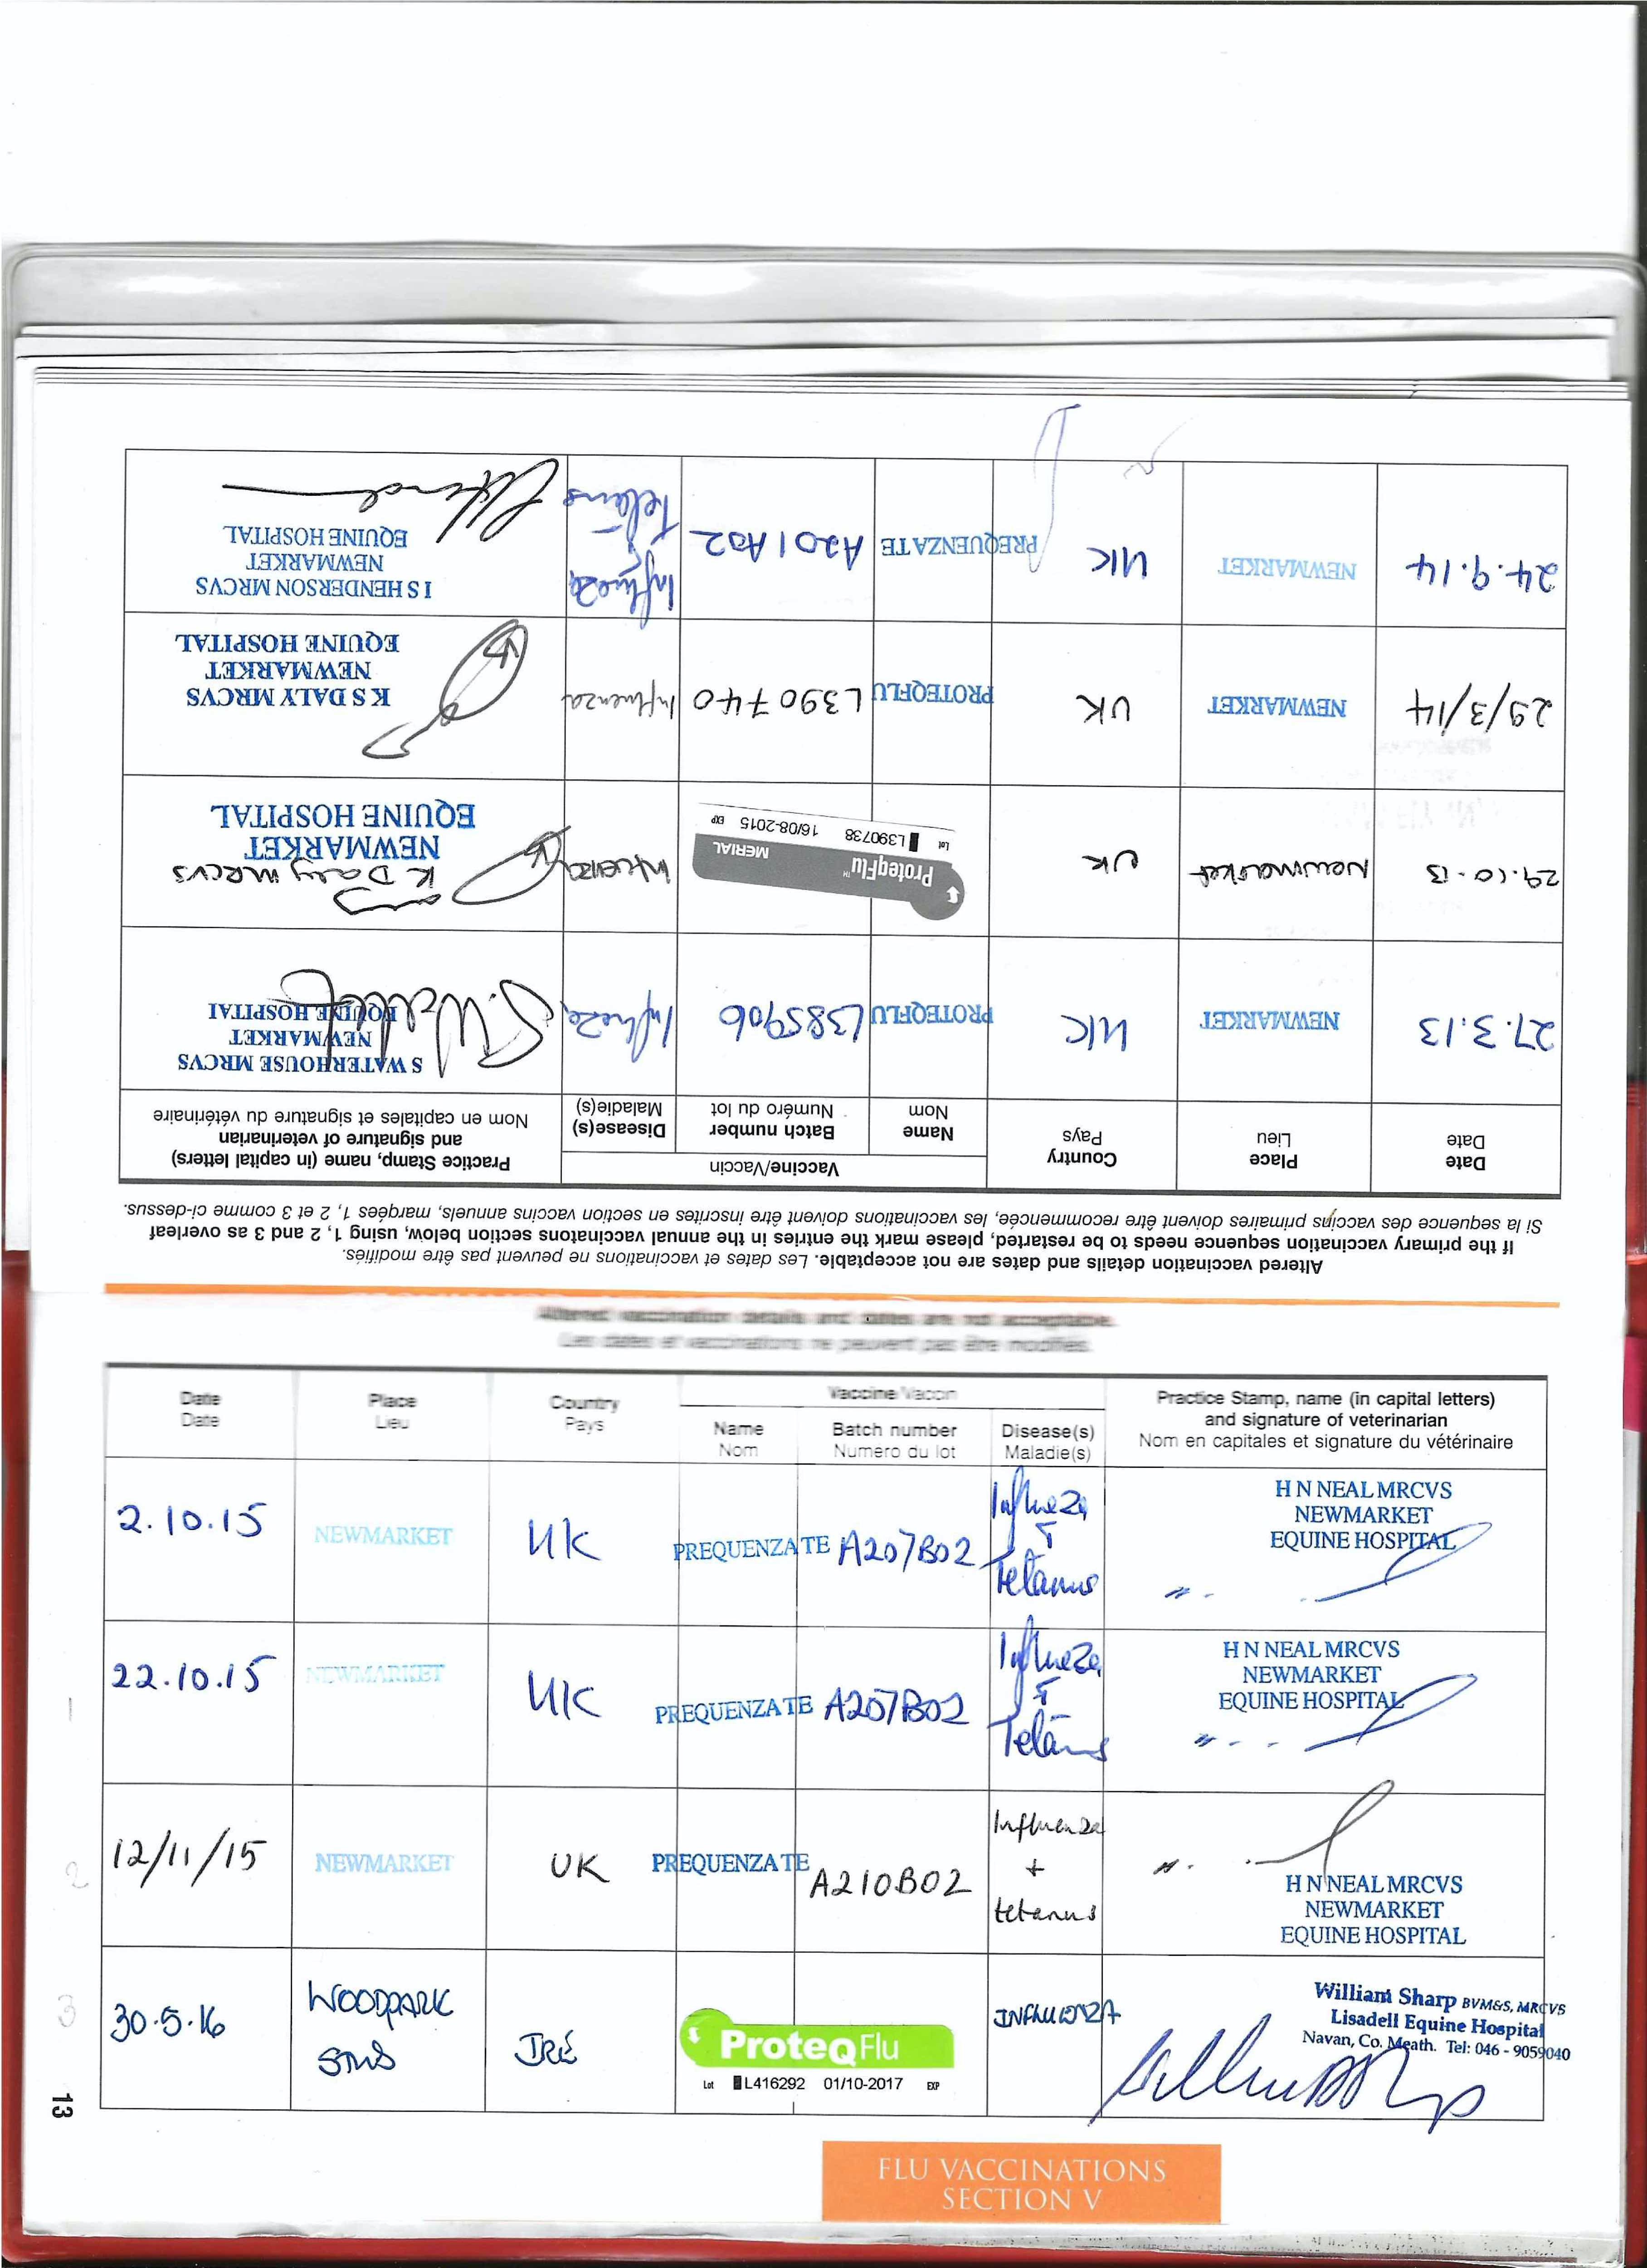 Altered vaccination details and dates are not acceptable. Les dates et vaccinations ne peuvent pas être modifiés.
If the primary vaccination sequence needs to be restarted, please mark the entries in the annual vaccinatons section below, using 1, 2 and 3 as overleaf
Si la sequence des vaccins primaires doivent être recommencée, les vaccinations doivent être inscrites en section vaccins annuels, marqées 1, 2 et 3 comme ci-dessus.
Date
Date
Place
Lieu
Country
Pays
Vaccine/Vaccin
Name
Nom
Batch number
Numéro du lot
Disease(s)
Maladie(s)
Practice Stamp, name (in capital letters)
and signature of veterinarian
Nom en capitales et signature du vétérinaire
27.3.13
NEWMARKET
UK
PROTEQFLU
L385906
Influeza
S WATERHOUSE MRCVS
NEWMARKET
EQUINE HOSPITAL
29.10.13
Newmarket
UK
ProteqFlu™
MERIAL
Lot L390738 16/08-2015 EXP
Influenza
K Daly MRCVS
NEWMARKET
EQUINE HOSPITAL
29/3/14
NEWMARKET
UK
PROTEQFLU
L390740
Influenza
K S DALY MRCVS
NEWMARKET
EQUINE HOSPITAL
24.9.14
NEWMARKET
UK
PREQUENZATE
A201A02
Influeza
Tetanus
I S HENDERSON MRCVS
NEWMARKET
EQUINE HOSPITAL
Altered vaccination details and dates are not acceptable.
Les dates et vaccinations ne peuvent pas être modifiés.
Date
Date
Place
Lieu
Country
Pays
Vaccine/Vaccin
Name
Nom
Batch number
Numero du lot
Disease(s)
Maladie(s)
Practice Stamp, name (in capital letters)
and signature of veterinarian
Nom en capitales et signature du vétérinaire
2.10.15
NEWMARKET
UK
PREQUENZATE
A207B02
Influeza
+
Tetanus
H N NEAL MRCVS
NEWMARKET
EQUINE HOSPITAL
1
22.10.15
NEWMARKET
UK
PREQUENZATE
A207B02
Influeza
+
Tetanus
H N NEAL MRCVS
NEWMARKET
EQUINE HOSPITAL
2
12/11/15
NEWMARKET
UK
PREQUENZATE
A210B02
Influenza
+
tetanus
H N NEAL MRCVS
NEWMARKET
EQUINE HOSPITAL
3
30.5.16
WOODPARK
STUD
IRE
ProteqFlu
Lot L416292 01/10-2017 EXP
INFLUENZA
William Sharp BVM&S, MRCVS
Lisadell Equine Hospital
Navan, Co. Meath. Tel: 046 - 9059040
13
FLU VACCINATIONS
SECTION V